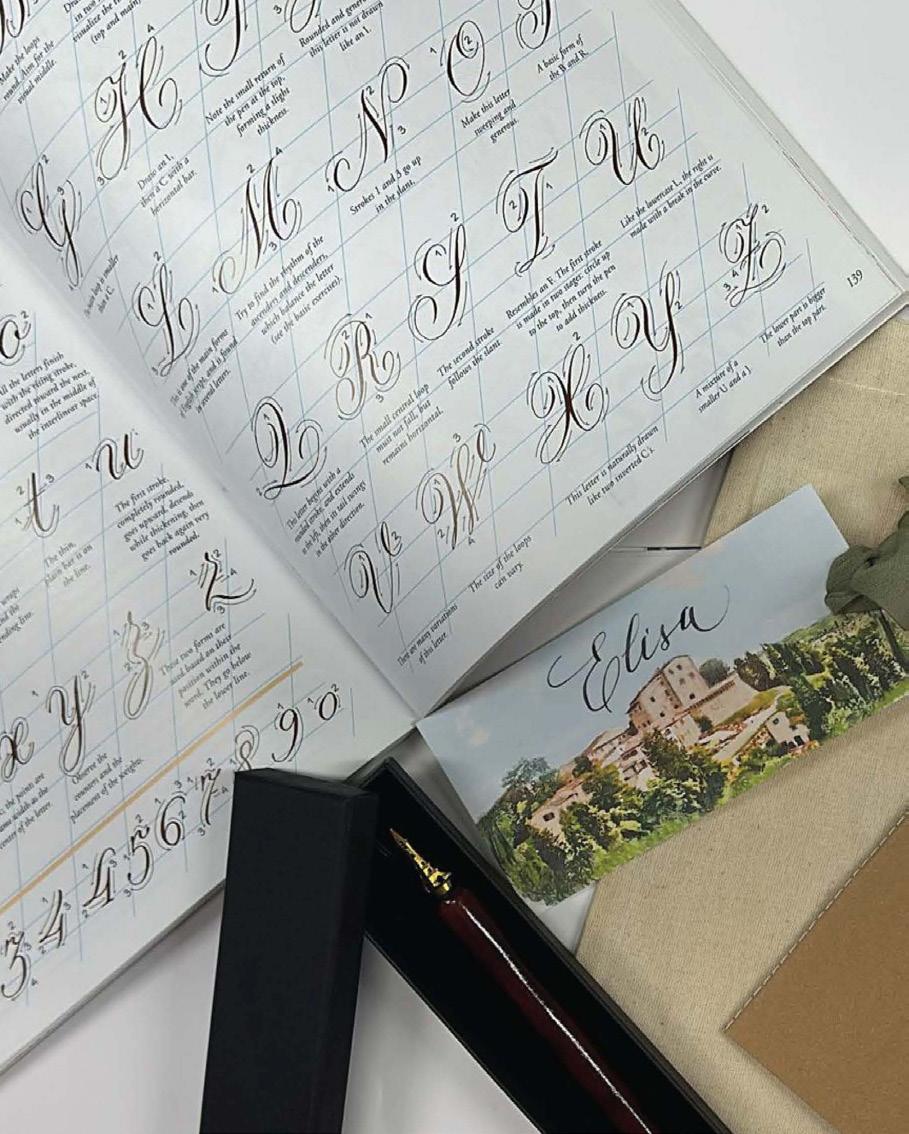 Make the loops
round. Aim for the
visual middle.
(top and main)
Rounded and generous,
this letter is not drawn
like an I.
H
Note the small return of
the pen at the top,
forming a slight
thickness.
N
O
A basic form of
the B and R.
G
Draw an I,
then a C with a
horizontal bar.
M
Strokes 1 and 3 go up
in the slant.
Make this letter
sweeping and
generous.
L
Try to find the rhythm of the
ascenders and descenders,
which balance the letter
(see the basic exercises).
S
T
U
This is one of the main forms
of English script, and is found
in several letters.
R
The second stroke
follows the slant.
Resembles an F. The first stroke
is made in two stages: circle up
to the top, then turn the pen
to add thickness.
Like the lowercase I, the right is
made with a break in the curve.
Q
The small central loop
must not fall, but
remains horizontal.
X
Y
Z
The letter begins with a
rounded stroke, and extends
to the left, then its tail swings
in the other direction.
V
W
This letter is naturally drawn
like two inverted C's.
A mixture of a
smaller U and a J
The lower part is bigger
than the top part.
139
There are many variations
of this letter.
The size of the loops
can vary.
All the letters finish
with the rising stroke,
directed toward the next,
usually in the middle of
the interlinear space
t
u
The thin,
plain bar is on
the line.
The first stroke,
completely rounded,
goes upward, descends
while thickening, then
goes back again very
rounded.
x
y
z
z
the points are
same width as the
center of the letter.
Observe the
counters and the
placement of the weights.
These two forms are
used based on their
position within the
word. They go below
the lower line.
3 4 4 5 6 7 8 9 0
Elisa